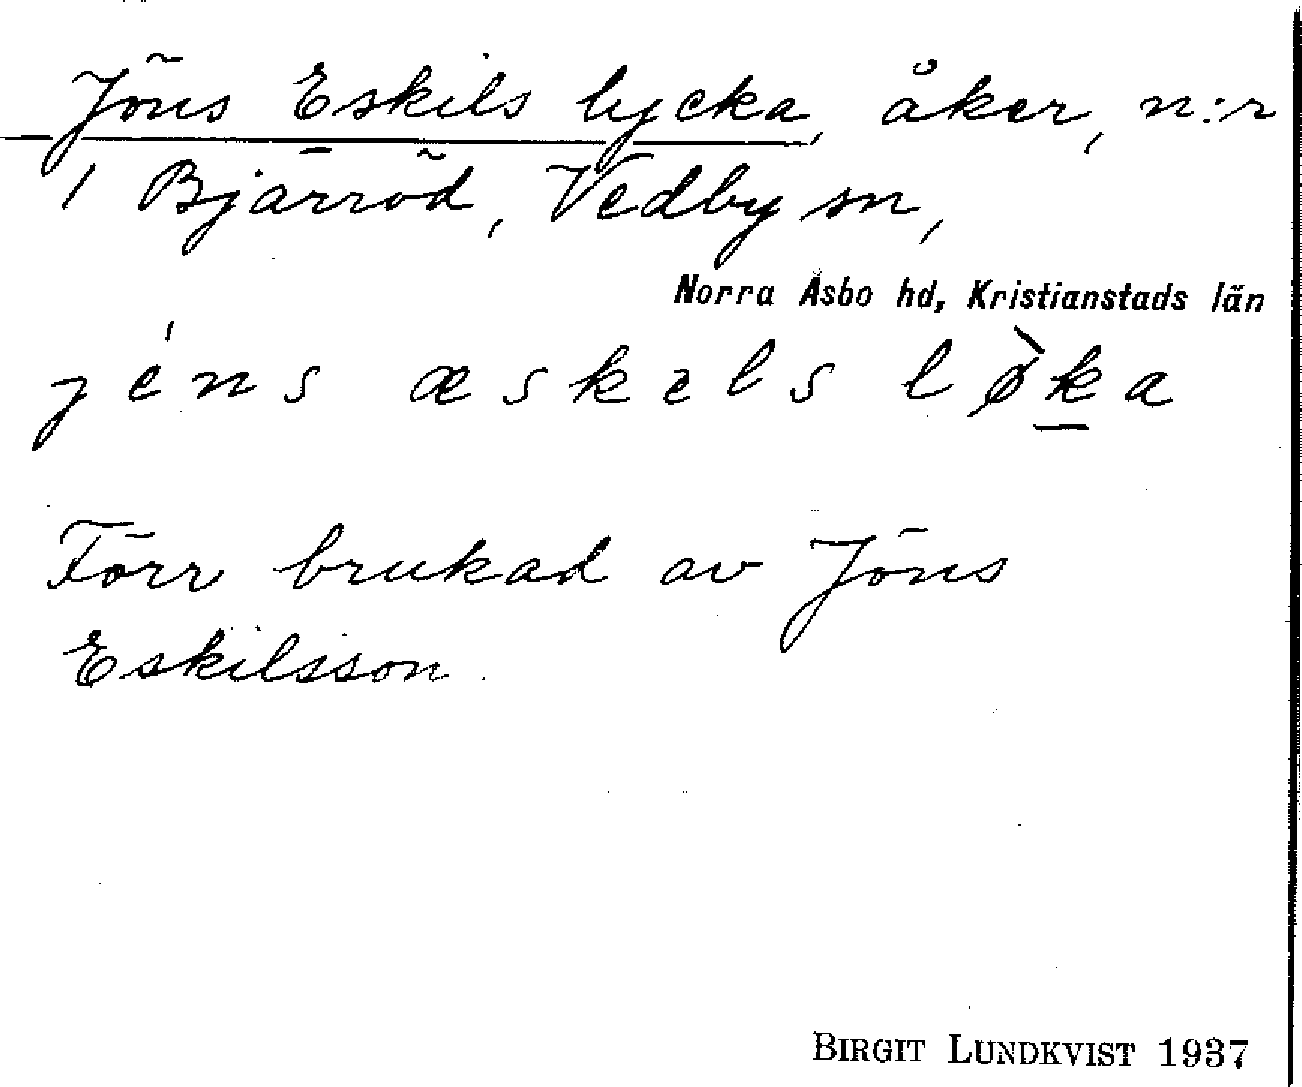 Jöns Eskils lycka, åker, n:r
1 Bjärröd, Vedby sn,
Norra Åsbo hd, Kristianstads län
jéns æskəls lø̀ka
Förr brukad av Jöns
Eskilsson.
BIRGIT LUNDKVIST 1937